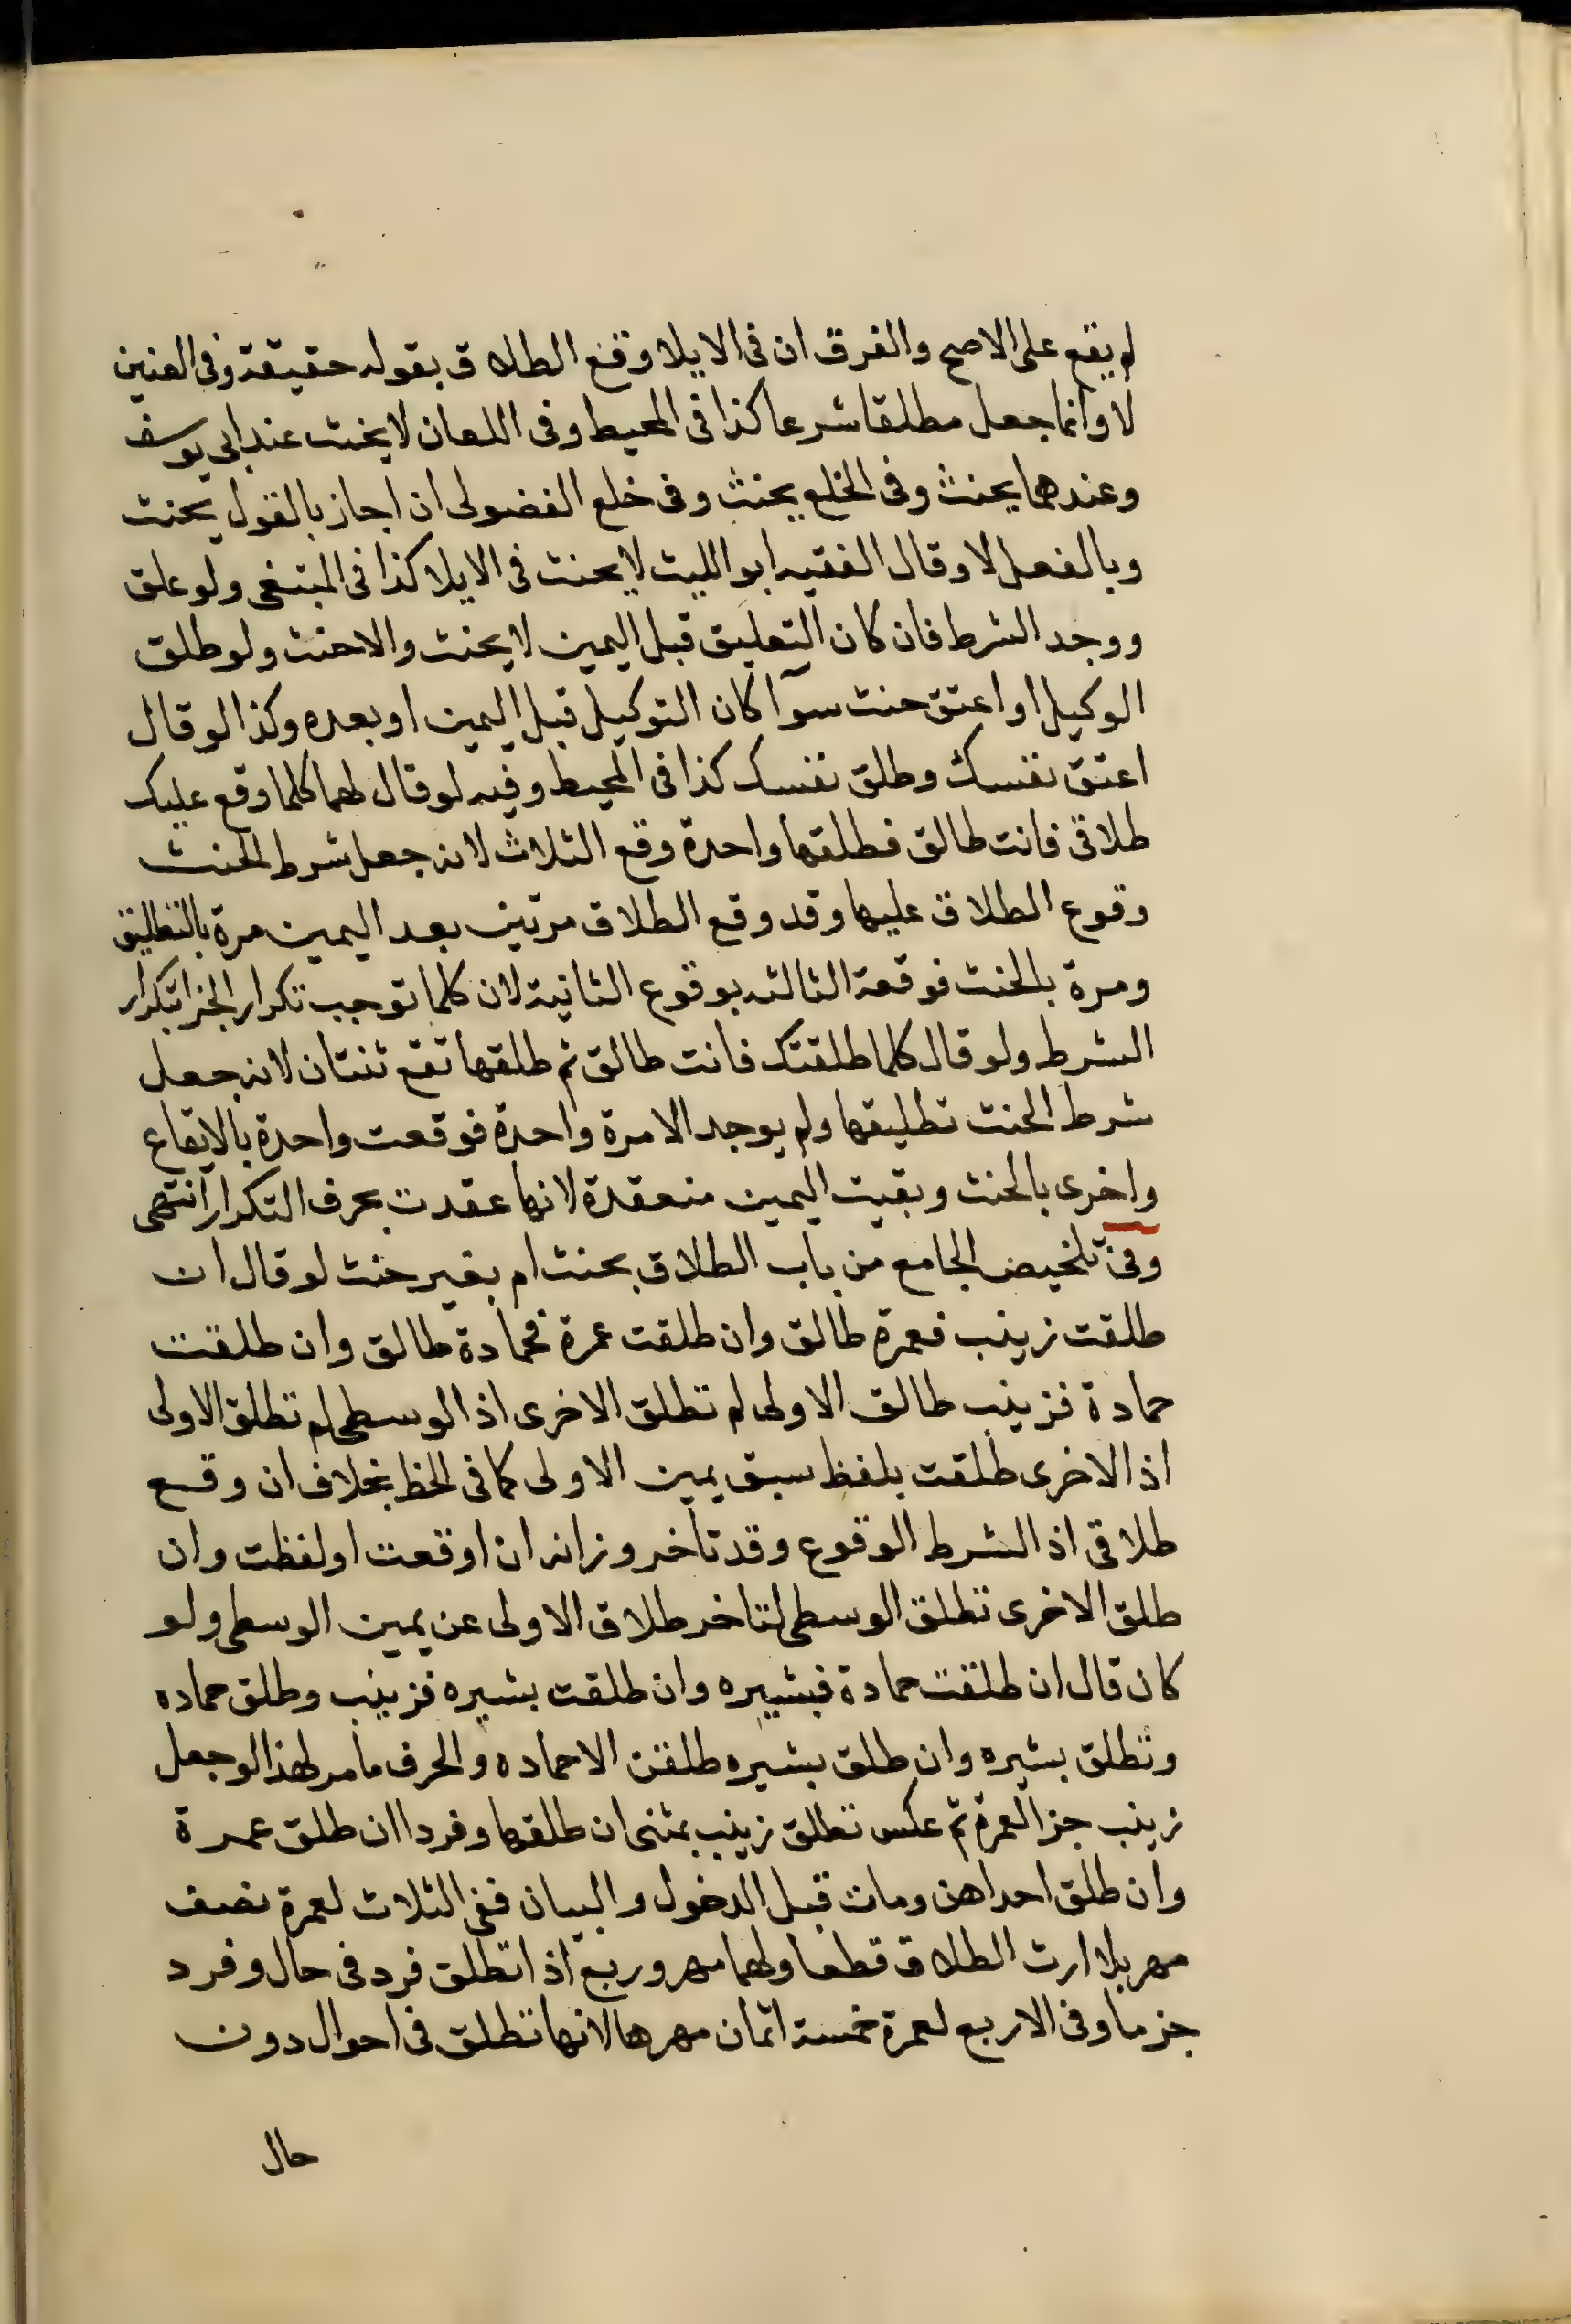 لم يقع على الاصح والفرق ان فى الايلا وقع الطلاق بقوله حقيقة وفى العنين
لا وانما جعل مطلقا شرعا كذا فى المحيط وفى اللعان لا يحنث عند ابى يوسف
وعندهما يحنث وفى الخلع يحنث وفى خلع الفضولى ان اجاز بالقول يحنث
وبالفعل لا وقال الفقيه ابو الليث لا يحنث فى الايلا كذا فى المبتغى ولو علق
ووجد الشرط فان كان التعليق قبل اليمين لا يحنث والا حنث ولو طلق
الوكيل او اعتق حنث سوآ كان التوكيل قبل اليمين او بعده وكذا لو قال
اعتق نفسك وطلق نفسك كذا فى المحيط وفيه لو قال لهما كلما وقع عليك
طلاقى فانت طالق فطلقها واحدة وقع الثلاث لانه جعل شرط الحنث
وقوع الطلاق عليها وقد وقع الطلاق مرتين بعد اليمين مرة بالتطليق
ومرة بالحنث فوقعة الثالثه بوقوع الثانية لان كلما توجب تكرار الجزا بتكرار
الشرط ولو قال كلما طلقتك فانت طالق ثم طلقها تقع ثنتان لانه جعل
شرط الحنث تطليقها ولم يوجد الا مرة واحدة فوقعت واحدة بالايقاع
واخرى بالحنث وبقيت اليمين منعقدة لانها عقدت بحرف التكرار انتهى
وفى تلخيص الجامع من باب الطلاق بحنث ام بغير حنث لو قال ان
طلقت زينب فعمرة طالق وان طلقت عمرة فحمادة طالق وان طلقت
حمادة فزينب طالق الاولى لم تطلق الاخرى اذ الوسطى لم تطلق الاولى
اذ الاخرى طلقت بلفظ سبق يمين الاولى كما فى الحظ بخلاف ان وقع
طلاقى اذ الشرط الوقوع وقد تاخر وزانه ان اوقعت او لفظت وان
طلق الاخرى تطلق الوسطى لتاخر طلاق الاولى عن يمين الوسطى ولو
كان قال ان طلقت حمادة فبشيره وان طلقت بشيره فزينب وطلق حماده
وتطلق بشيره وان طلق بشيره طلقن الا حماده والحرف ما مر لهذا لو جعل
زينب جزا لعمرة ثم عكس تطلق زينب بمثنى ان طلقها وفردا ان طلق عمرة
وان طلق احداهن ومات قبل الدخول والبيان ففى الثلاث لعمرة نصف
مهر بلا ارث الطلاق قطعا ولهما مهر وربع اذ اتطلق فرد فى حال وفرد
جزما وفى الاربع لعمرة خمسة اثمان مهرها لانها تطلق فى احوال دون
حال